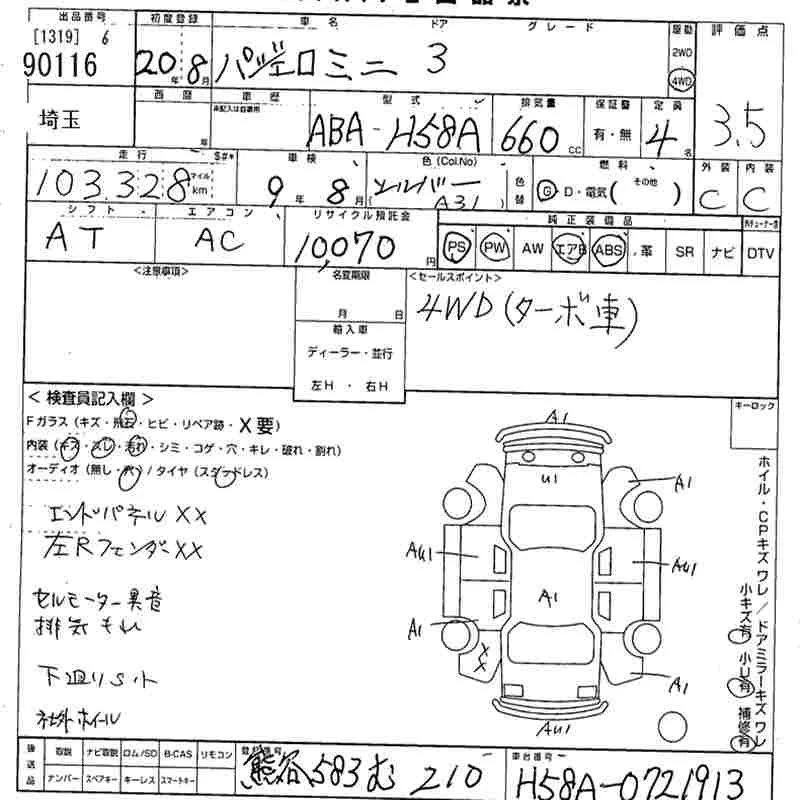 出品番号 初度登録 車名 ドア グレード 駆動 評価点
[1319] 6 2WD
90116 20年8月 パジェロミニ 3 4WD
西暦 車歴 型式 排気量 保証書 定員
未記入は自家用
埼玉 年 ABA-H58A 660cc 有・無 4名 3.5
走行 $#* 車検 色(Col.No) 燃料 外装 内装
103,328 マイル km 9年8月 シルバー (A31) 色替 G D・電気(その他) C C
シフト エアコン リサイクル預託金 純正装備品
AT AC 10,070円 PS PW AW エアB ABS 革 SR ナビ DTV
<注意事項> 名変期限 <セールスポイント>
月 日 4WD(ターボ車)
輸入車
ディーラー・並行
左H・右H
<検査員記入欄> キーロック
Fガラス(キズ・飛石・ヒビ・リペア跡・X要)
内装(キズ・スレ・汚れ・シミ・コゲ・穴・キレ・破れ・割れ)
オーディオ(無し・穴)/タイヤ(スタッドレス)
エンドパネルXX
左RフェンダーXX
セルモーター異音
排気もれ
下廻りS小
社外ホイール
A1
U1
A1 A1
AU1 AU1
A1
A1 XX A1
AU1
ホイル・CPキズワレ/ドアミラーキズワレ
小キズ有 小U有 補修有
後送品 取説 ナビ取説 ロム/SD B-CAS リモコン 登録番号 車台番号
ナンバー スペアキー キーレス スマートキー 熊谷583む210 H58A-0721913